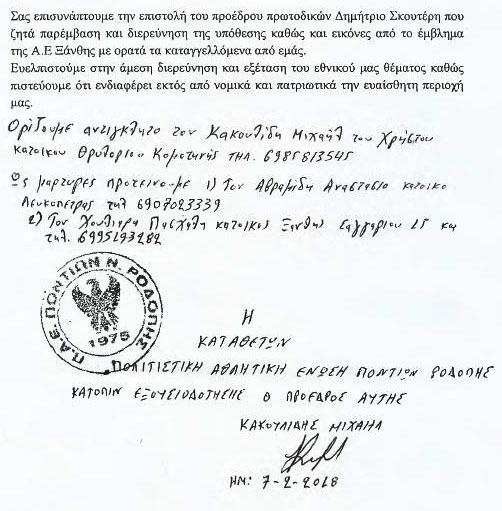 Σας επισυνάπτουμε την επιστολή του προέδρου πρωτοδικών Δημήτριο Σκουτέρη που
ζητά παρέμβαση και διερεύνηση της υπόθεσης καθώς και εικόνες από το έμβλημα
της Α.Ε Ξάνθης με ορατά τα καταγγελλόμενα από εμάς.
Ευελπιστούμε στην άμεση διερεύνηση και εξέταση του εθνικού μας θέματος καθώς
πιστεύουμε ότι ενδιαφέρει εκτός από νομικά και πατριωτικά την ευαίσθητη περιοχή
μας.
Ορίζουμε αντίκλητο τον Κακουλίδη Μιχαήλ του Χρήστου
κατοίκου Θρυλορίου Κομοτηνής ΤΗΛ. 6985813545
Ως μάρτυρες προτείνουμε 1) Τον Αβραμίδη Αναστάσιο κάτοικο
Λευκόπετρας τηλ 6907023339
2) Τον Χουλιάρα Πασχάλη κάτοικος Ξάνθης Σαγγαρίου 25 και
τηλ. 6995293282
Π.Α.Ε. ΠΟΝΤΙΩΝ Ν. ΡΟΔΟΠΗΣ
1975
Η
ΚΑΤΑΘΕΤΩΝ
ΠΟΛΙΤΙΣΤΙΚΗ ΑΘΛΗΤΙΚΗ ΕΝΩΣΗ ΠΟΝΤΙΩΝ ΡΟΔΟΠΗΣ
ΚΑΤΟΠΙΝ ΕΞΟΥΣΙΟΔΟΤΗΣΗΣ Ο ΠΡΟΕΔΡΟΣ ΑΥΤΗΣ
ΚΑΚΟΥΛΙΔΗΣ ΜΙΧΑΗΛ
ΗΜ: 7-2-2018